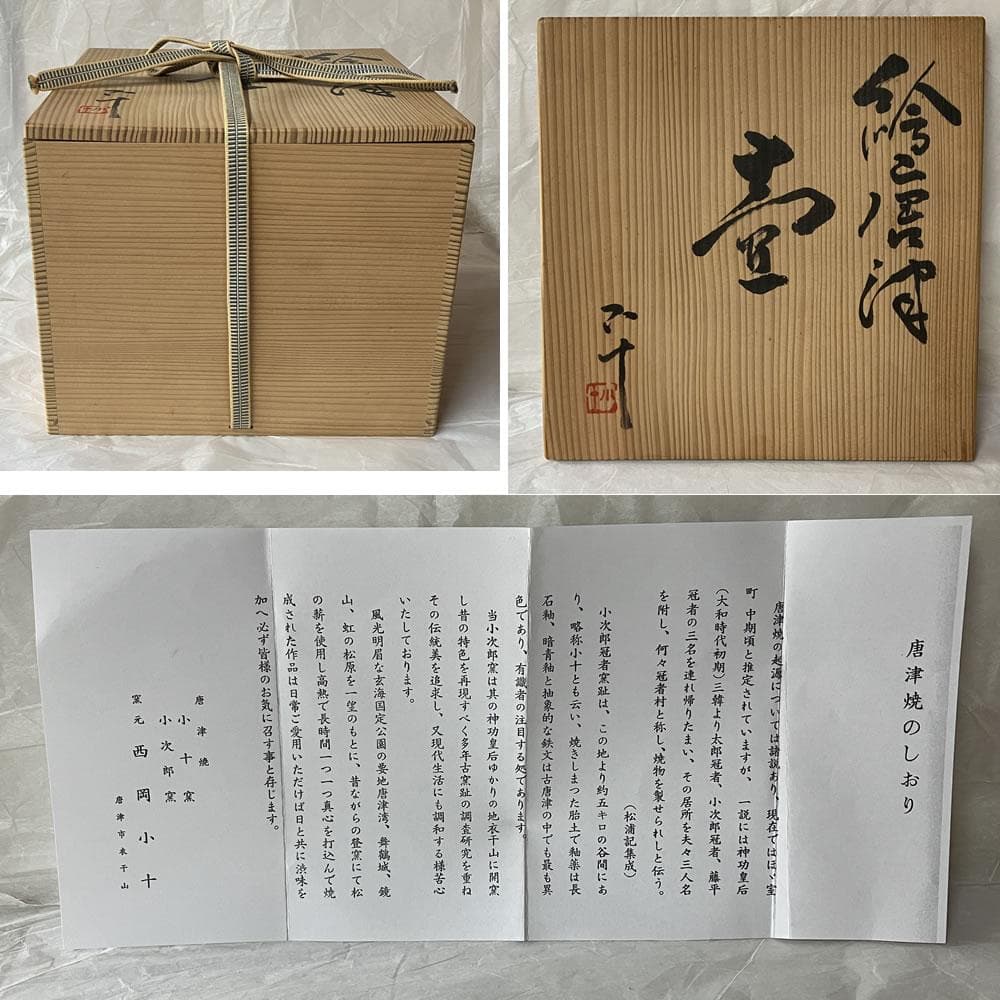 絵唐津
壷
小十
唐津焼のしおり
唐津焼の起源については諸説あり、現在ではほゞ室
町 中期頃と推定されていますが、 一説には神功皇后
(大和時代初期)三韓より太郎冠者、小次郎冠者、藤平
冠者の三名を連れ帰りたまい、その居所を夫々三人名
を附し、何々冠者村と称し、焼物を製せられしと伝う。
(松浦記集成)
小次郎冠者窯趾は、この地より約五キロの谷間にあ
り、略称小十とも云い、焼きしまつた胎土で釉薬は長
石釉、暗青釉と抽象的な鉄文は古唐津の中でも最も異
色であり、有識者の注目する処であります。
当小次郎窯は其の神功皇后ゆかりの地衣干山に開窯
し昔の特色を再現すべく多年古窯趾の調査研究を重ね
その伝統美を追求し、又現代生活にも調和する様苦心
いたしております。
風光明眉な玄海国定公園の要地唐津湾、舞鶴城、鏡
山、虹の松原を一望のもとに、昔ながらの登窯にて松
の薪を使用し高熱で長時間一つ一つ真心を打込んで焼
成された作品は日常ご愛用いただけば日と共に渋味を
加へ必ず皆様のお気に召す事と存じます。
唐津焼
小十窯
小次郎窯
窯元 西岡小十
唐津市衣干山